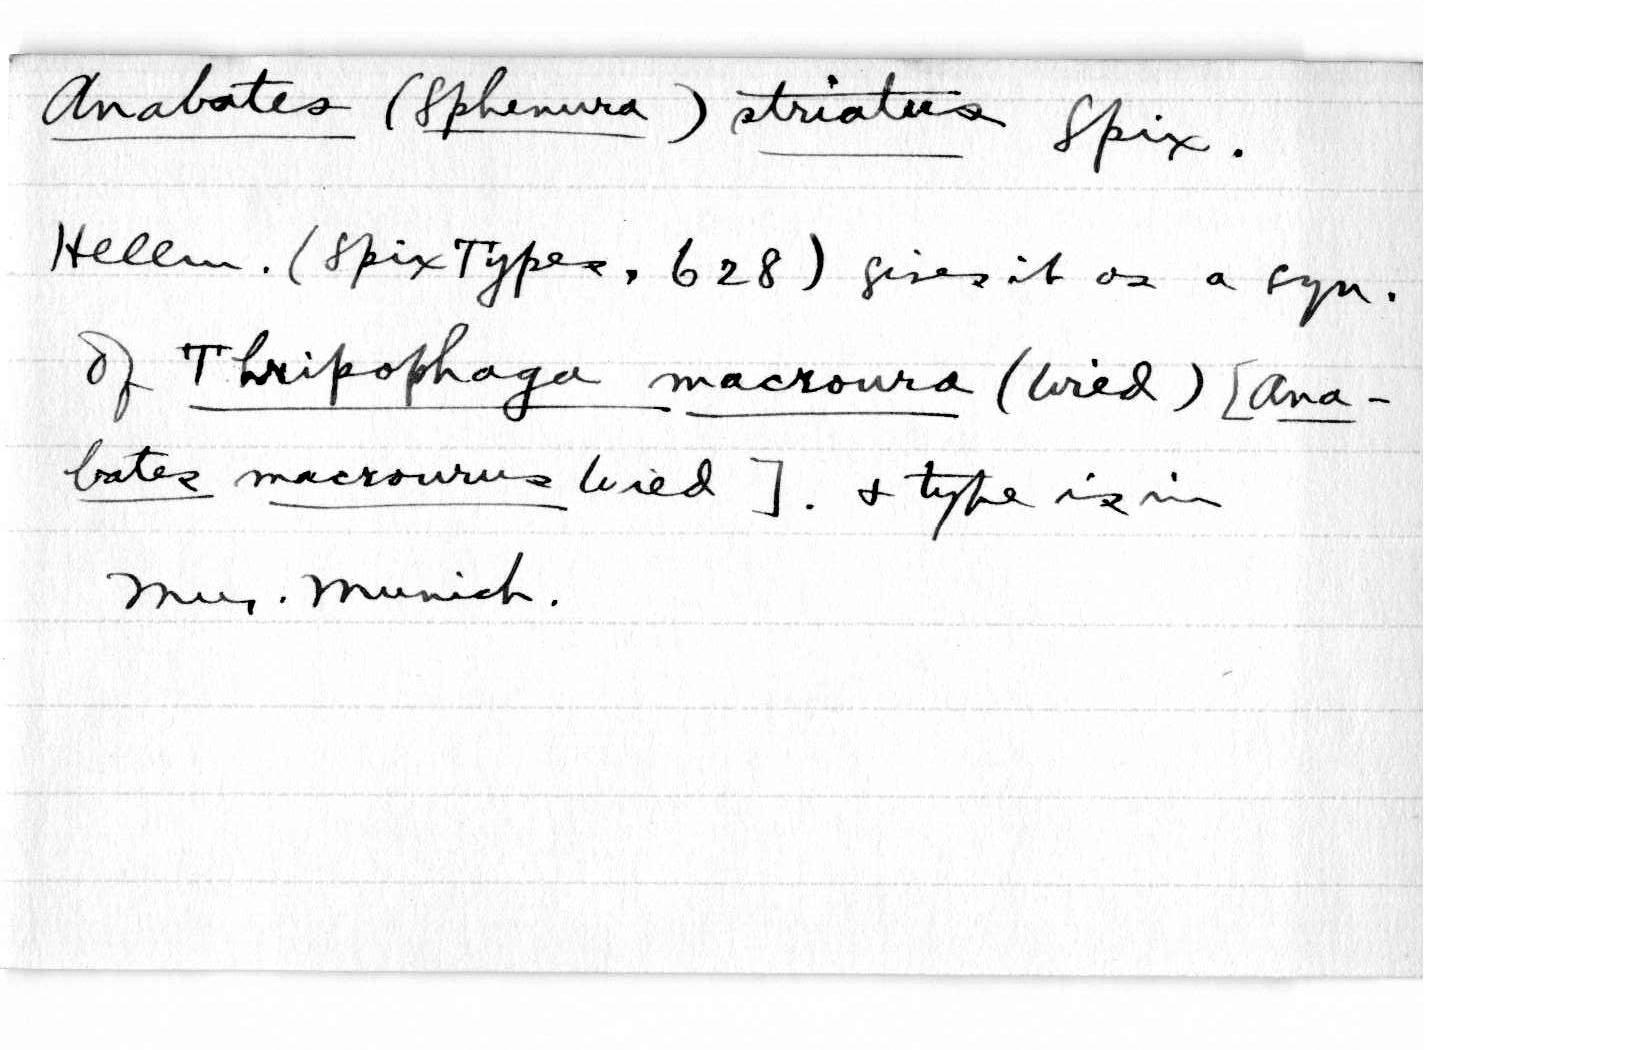 Anabates (Sphenura) striatus Spix.
Hellm. (Spix Types, 628) gives it as a syn.
of Thripophaga macroura (Wied) [Ana-
bates macrourus Wied]. & type is in
Mus. Munich.